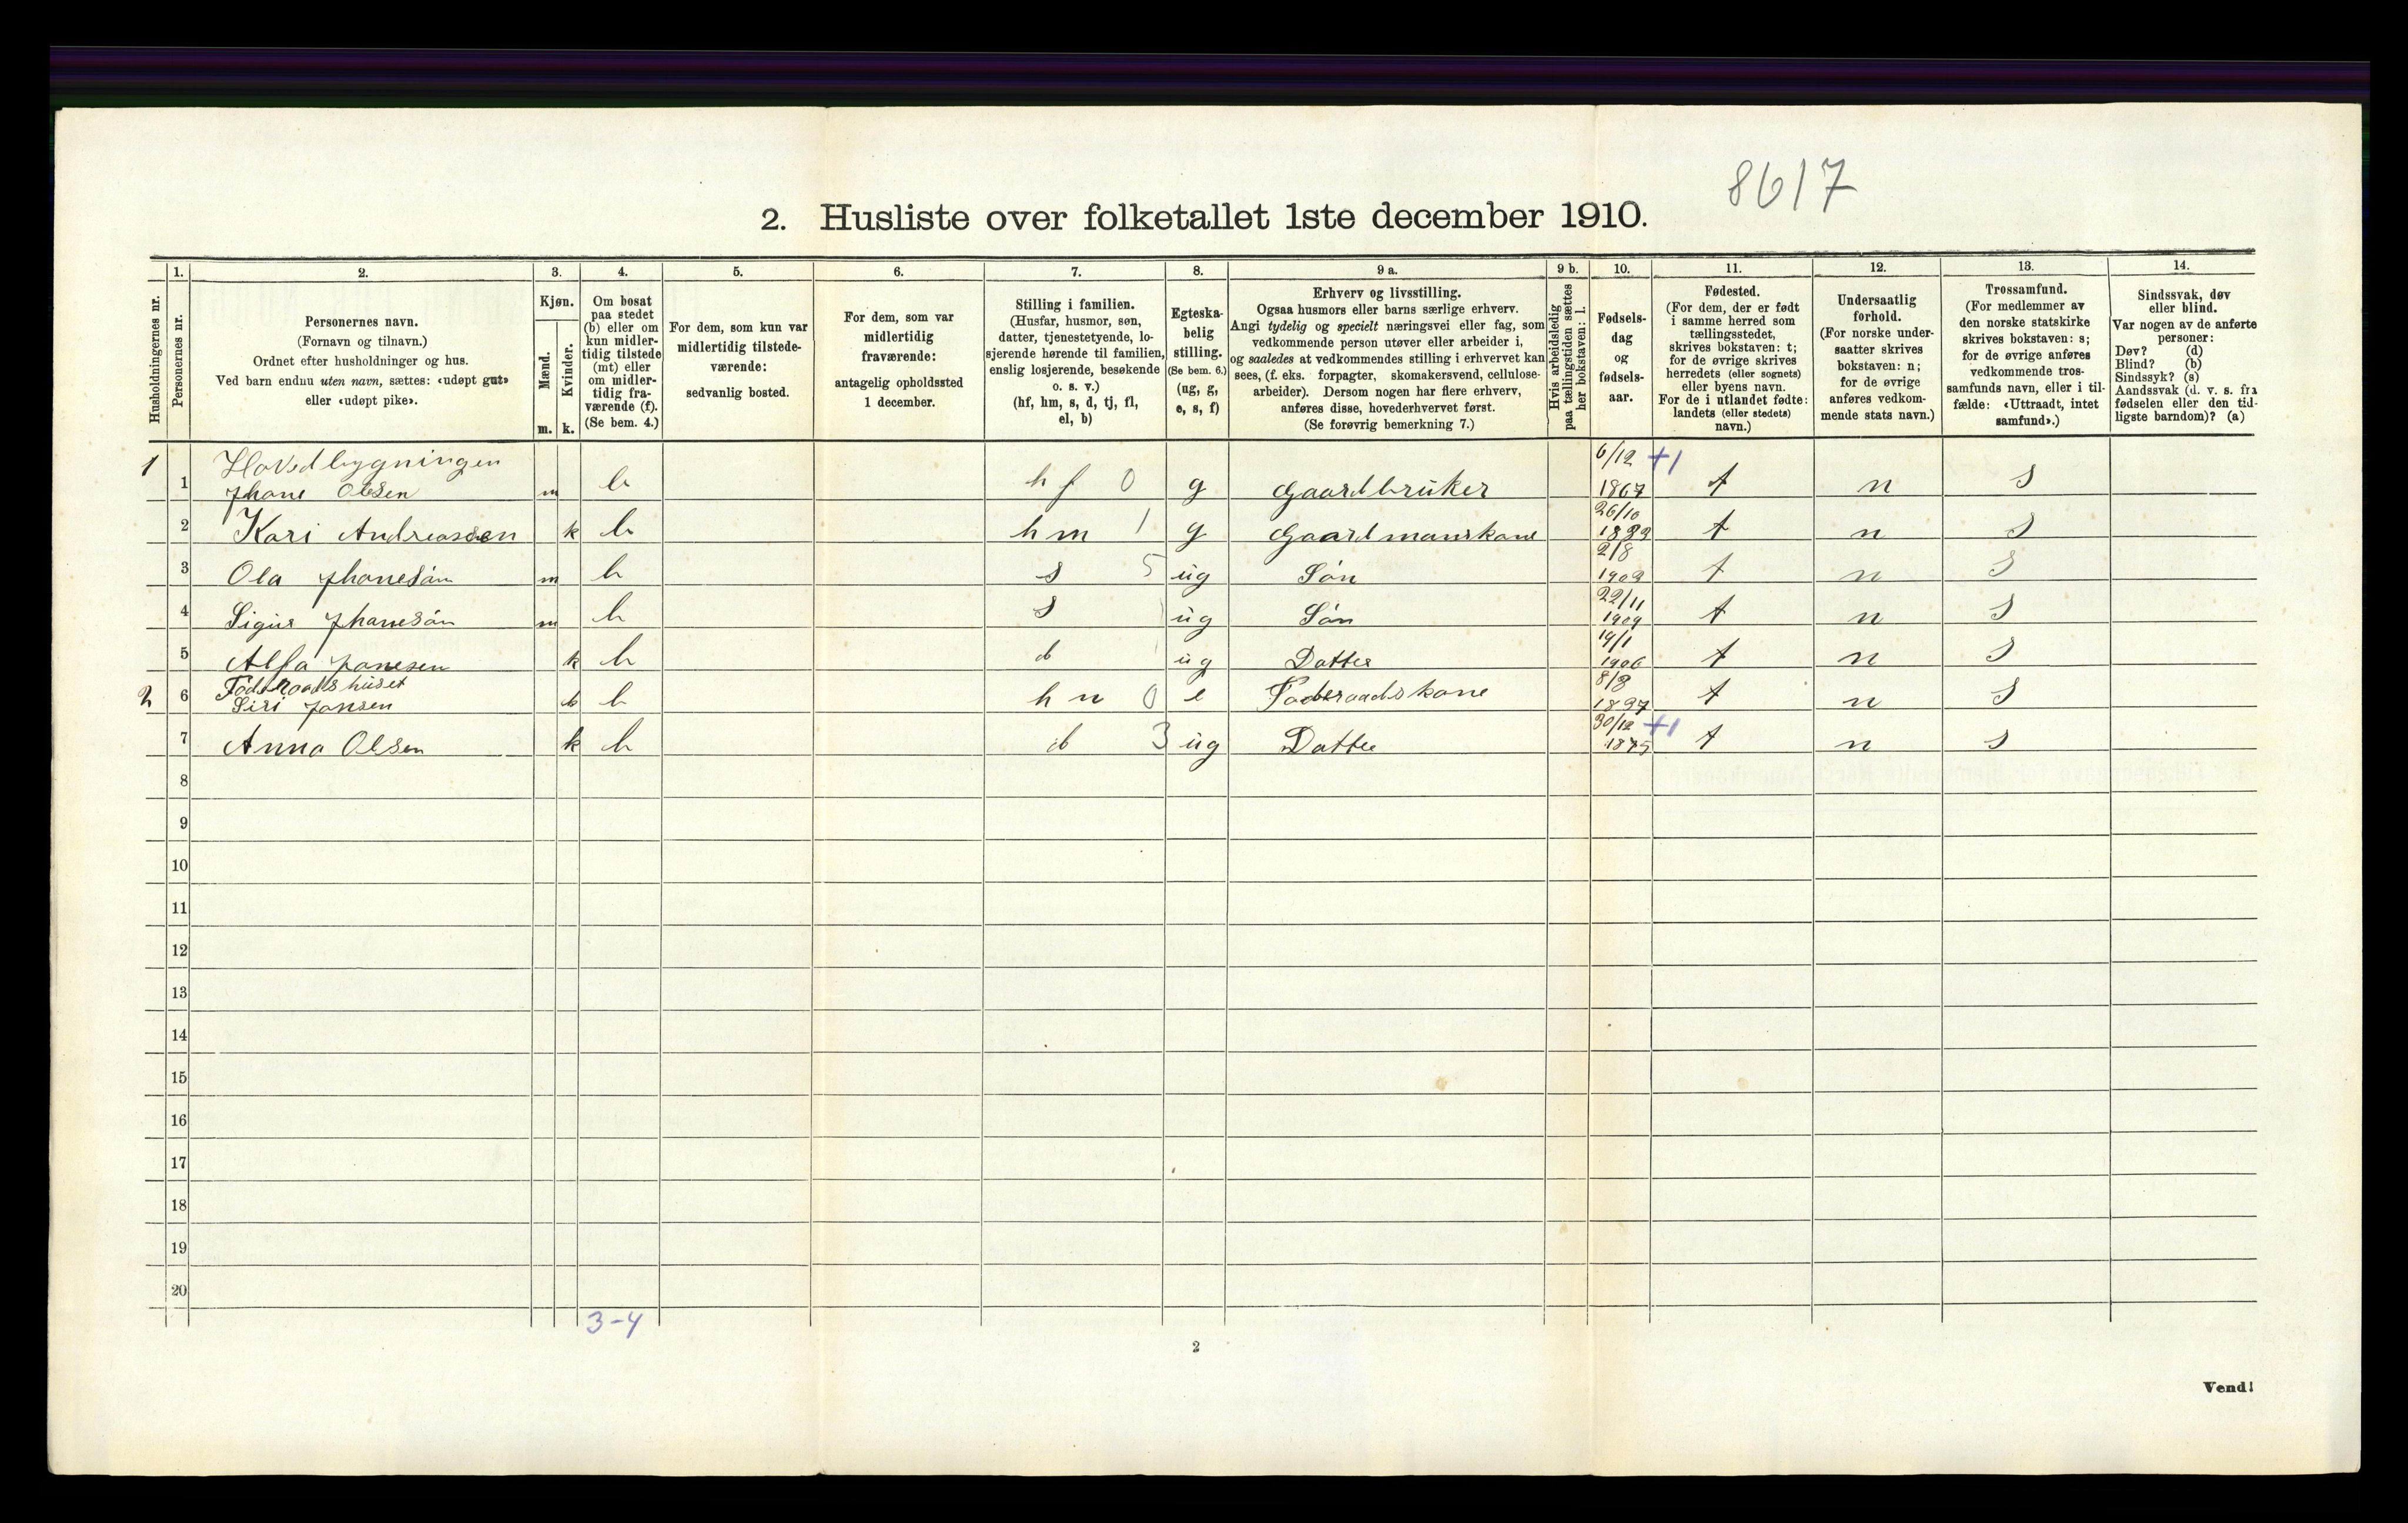 8617
2. Husliste over folketallet 1ste december 1910.
Husholdningernes nr.
1.
Personernes nr.
2.
Personernes navn.
(Fornavn og tilnavn.)
Ordnet efter husholdninger og hus.
Ved barn endnu uten navn, sættes: «udøpt gut»
eller «udøpt pike».
3.
Kjøn.
Mænd.
Kvinder.
m. k.
4.
Om bosat
paa stedet
(b) eller om
kun midler-
tidig tilstede
(mt) eller
om midler-
tidig fra-
værende (f).
(Se bem. 4.)
5.
For dem, som kun var
midlertidig tilstede-
værende:
sedvanlig bosted.
6.
For dem, som var
midlertidig
fraværende:
antagelig opholdssted
1 december.
7.
Stilling i familien.
(Husfar, husmor, søn,
datter, tjenestetyende, lo-
sjerende hørende til familien,
enslig losjerende, besøkende
o. s. v.)
(hf, hm, s, d, tj, fl,
el, b)
8.
Egteska-
belig
stilling.
(Se bem. 6.)
(ug, g,
e, s, f)
9 a.
Erhverv og livsstilling.
Ogsaa husmors eller barns særlige erhverv.
Angi tydelig og specielt næringsvei eller fag, som
vedkommende person utøver eller arbeider i,
og saaledes at vedkommendes stilling i erhvervet kan
sees, (f. eks. forpagter, skomakersvend, cellulose-
arbeider). Dersom nogen har flere erhverv,
anføres disse, hovederhvervet først.
(Se forøvrig bemerkning 7.)
9 b.
Hvis arbeidsledig
paa tællingstiden sættes
her bokstaven: l.
10.
Fødsels-
dag
og
fødsels-
aar.
11.
Fødested.
(For dem, der er født
i samme herred som
tællingsstedet,
skrives bokstaven: t;
for de øvrige skrives
herredets (eller sognets)
eller byens navn.
For de i utlandet fødte:
landets (eller stedets)
navn.)
12.
Undersaatlig
forhold.
(For norske under-
saatter skrives
bokstaven: n;
for de øvrige
anføres vedkom-
mende stats navn.)
13.
Trossamfund.
(For medlemmer av
den norske statskirke
skrives bokstaven: s;
for de øvrige anføres
vedkommende tros-
samfunds navn, eller i til-
fælde: «Uttraadt, intet
samfund».)
14.
Sindssvak, døv
eller blind.
Var nogen av de anførte
personer:
Døv? (d)
Blind? (b)
Sindssyk? (s)
Aandssvak (d. v. s. fra
fødselen eller den tid-
ligste barndom)? (a)
1 Hovedbygningen 6/12 +1
1 Jhane Olsen m b hf 0 g Gaardbruker 1867 t n s
26/10
2 Kari Andreassen k b hm 1 g Gaardmanskone t n s
2/8
3 Ola Jhanesøn m b s 5 ug Søn t n s
22/11
4 Jhanesøn m b s ug Søn 1909 t n s
19/1
5 Alfa Janesen k b d ug Datter 1906 t n s
2 Føderaadshuset
6 Siri Jansen k b 0 e Føderaadskone t n s
30/12 +1
7 Anna Olsen k b d 3 ug Datter 1875 t n s
8
9
10
11
12
13
14
15
16
17
18
19
20
3-4
2
Vend!